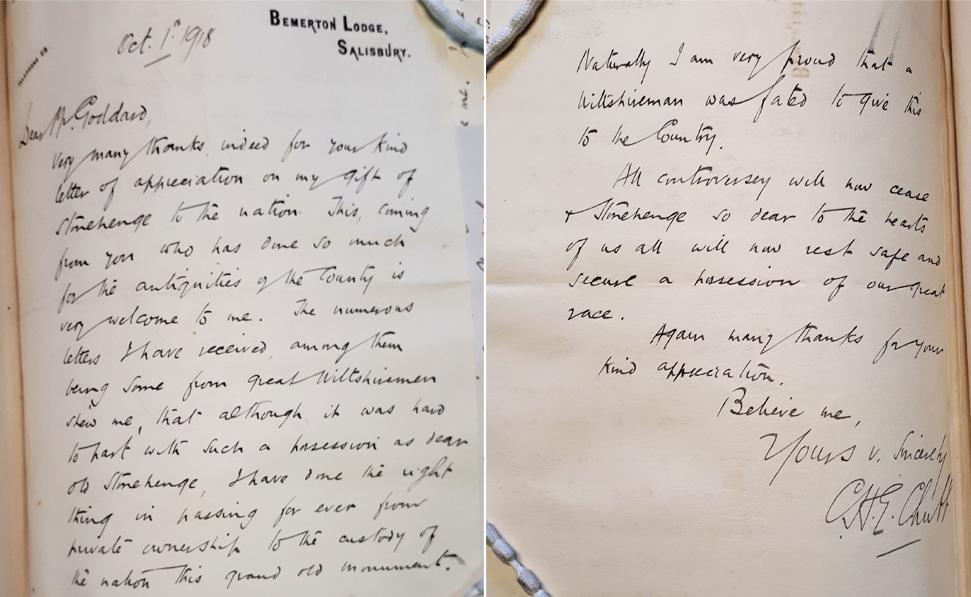 BEMERTON LODGE,
SALISBURY.
Oct. 1st 1918
Dear Mr. Goddard,
Very many thanks indeed for your kind
letter of appreciation on my gift of
Stonehenge to the nation. This, coming
from you who has done so much
for the antiquities of the County is
very welcome to me. The numerous
letters I have received, among them
being some from great Wiltshiremen
shew me, that although it was hard
to part with such a possession as dear
old Stonehenge, I have done the right
thing in passing for ever from
private ownership to the custody of
the nation this grand old monument.
Naturally I am very proud that a
Wiltshireman was fated to give this
to the Country.
All controversey will now cease
& Stonehenge so dear to the hearts
of us all will now rest safe and
secure a possession of our great
race.
Again many thanks for your
kind appreciation.
Believe me,
Yours v. Sincerely
C.H.E. Chubb